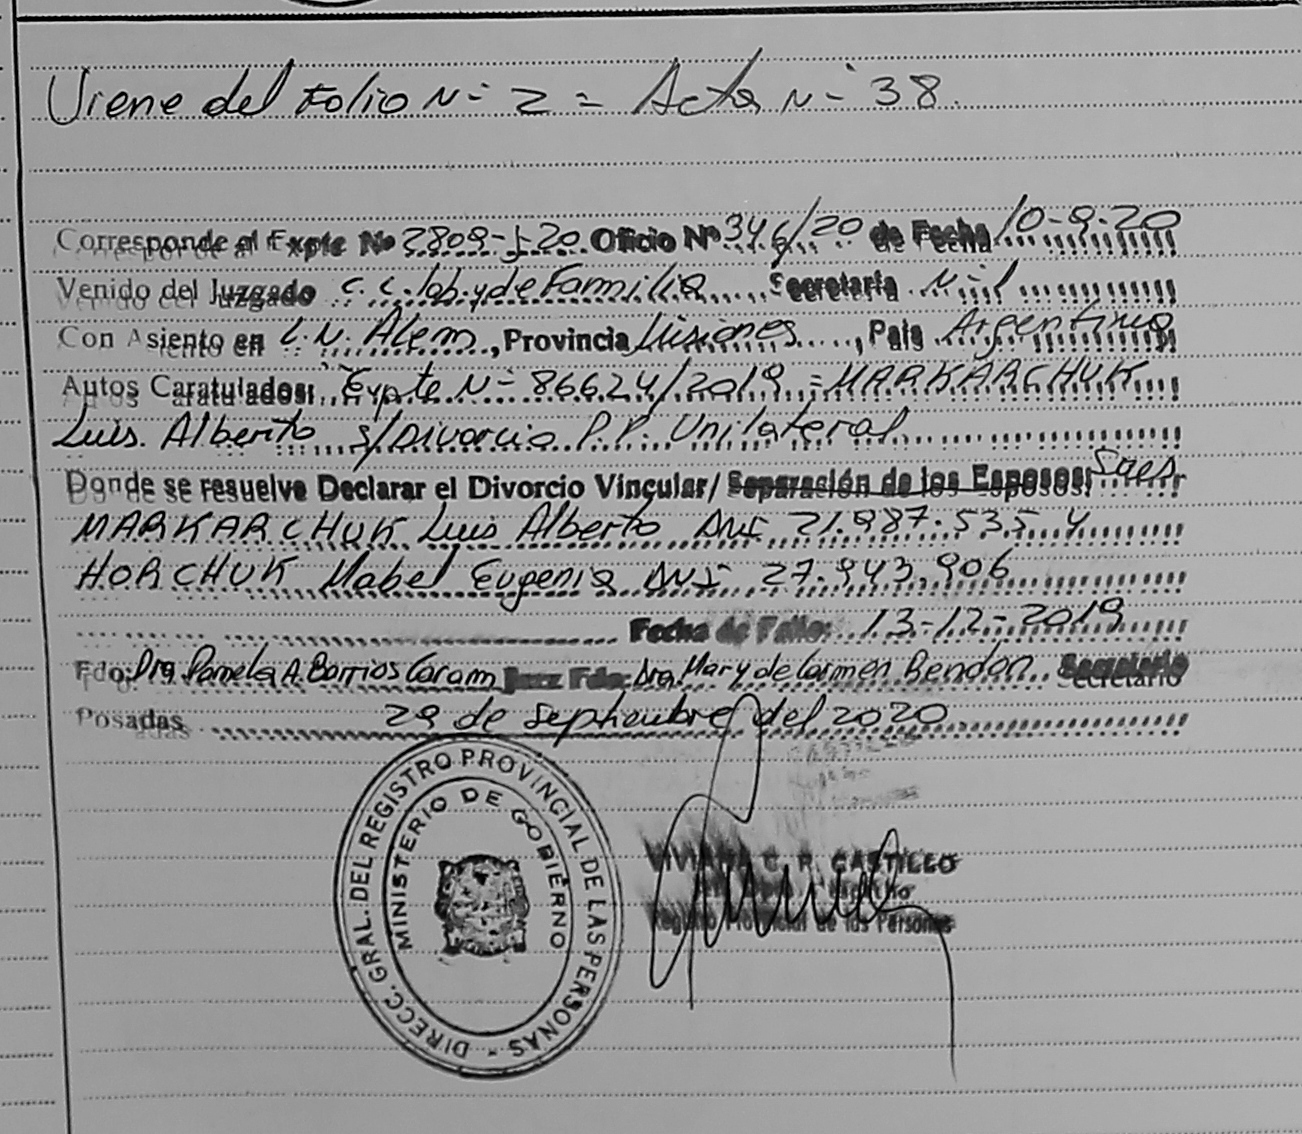 Viene del Folio N- 2 = Acta N- 38.
Corresponde al Expte Nº 2809-J-20 Oficio Nº 346/20 de Fecha 10-9-20
Venido del Juzgado C.C. lab. y de Familia Secretaria N- 1
Con Asiento en L.N. Alem, Provincia Misiones, Pais Argentina
Autos Caratulados: Expte N- 86624/2019 = MARKARCHUK
Luis Alberto s/Divorcio P.P. Unilateral
Donde se resuelve Declarar el Divorcio Vincular/ Separación de los Esposos: Sres
MARKARCHUK Luis Alberto DNI 21.987.535 y
HORCHUK Mabel Eugenia DNI 27.943.906
Fecha de Fallo: 13-12-2019
Fdo: Dra Pamela A. Barrios Caram Juez Fdo: Dra. Mary de Carmen Bendon Secretario
Posadas 29 de Septiembre del 2020
DIRECC. GRAL. DEL REGISTRO PROVINCIAL DE LAS PERSONAS -
MINISTERIO DE GOBIERNO
VIVIANA C. R. CASTILLO
Registro Provincial de las Personas